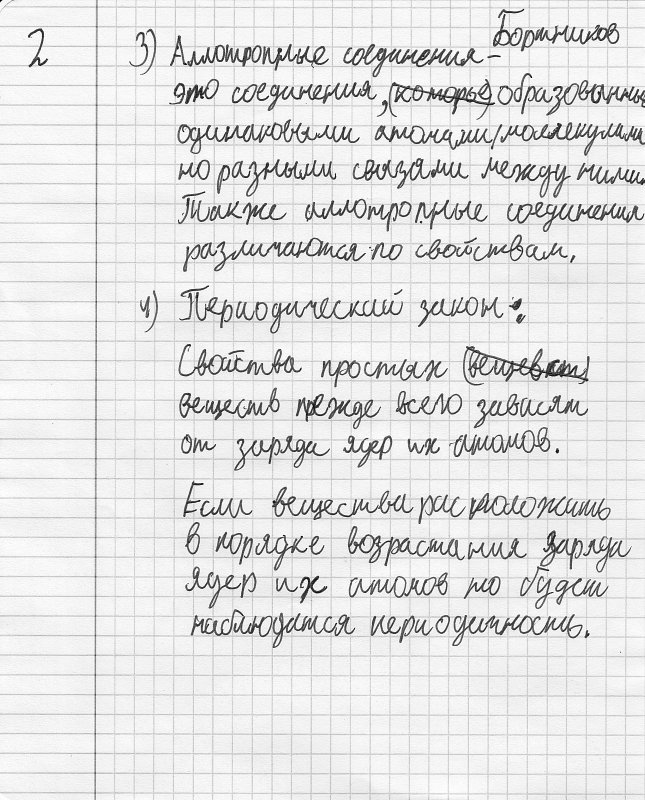 Бортников
2
3) Аллотропные соединения –
это соединения, (которые) образованные
одинаковыми атомами/молекулами
но разными связями между ними.
Также аллотропные соединения
различаются по свойствам.
4) Периодический закон:
Свойства простых (веществ)
веществ прежде всего зависят
от заряда ядер их атомов.
Если вещества расположить
в порядке возрастания заряда
ядер их атомов то будет
наблюдатся периодичность.